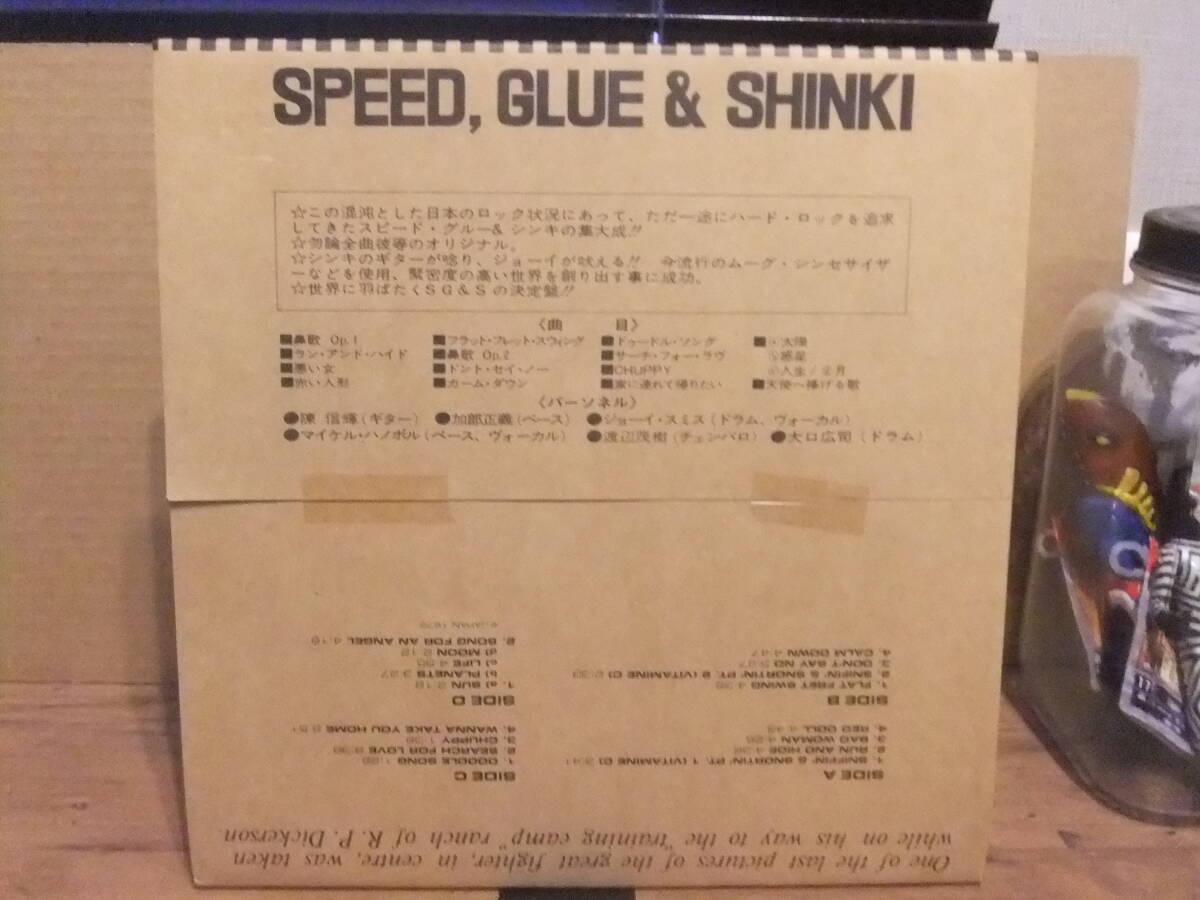 SPEED, GLUE & SHINKI
☆この混沌とした日本のロック状況にあって、ただ一途にハード・ロックを追求
してきたスピード・グルー& シンキの集大成!!
☆勿論全曲彼等のオリジナル。
☆シンキのギターが唸り、ジョーイが吠える!! 今流行のムーグ・シンセサイザ
ーなどを使用、緊密度の高い世界を創り出す事に成功。
☆世界に羽ばたくSG&Sの決定盤!!
〈曲 目〉
■鼻歌 Op.1 ■フラット・フレット・スウィング ■ドゥードル・ソング ■ⓐ太陽
■ラン・アンド・ハイド ■鼻歌 Op.2 ■サーチ・フォー・ラヴ ⓑ惑星
■悪い女 ■ドント・セイ・ノー ■CHUPPY ⓒ人生/ⓓ月
■赤い人形 ■カーム・ダウン ■家に連れて帰りたい ■天使へ捧げる歌
〈パーソネル〉
●陳 信輝(ギター) ●加部正義(ベース) ●ジョーイ・スミス(ドラム、ヴォーカル)
●マイケル・ハノポル(ベース、ヴォーカル) ●渡辺茂樹(チェンバロ) ●大口広司(ドラム)
One of the last pictures of the great fighter, in centre, was taken
while on his way to the "training camp" ranch of R. P. Dickerson.
SIDE A
1. SNIFFIN' & SNORTIN' PT. 1 (VITAMINE C) 3:41
2. RUN AND HIDE 4:38
3. BAD WOMAN
4. RED DOLL
SIDE B
1. FLAT FRET SWING
2. SNIFFIN' & SNORTIN' PT. 2 (VITAMINE C) 2:33
3. DON'T SAY NO
4. CALM DOWN 4:47
SIDE C
1. DOODLE SONG
2. SEARCH FOR LOVE
3. CHUPPY
4. WANNA TAKE YOU HOME
SIDE D
1. a) SUN
b) PLANETS 3:27
c) LIFE
d) MOON 2:12
2. SONG FOR AN ANGEL
JAPAN